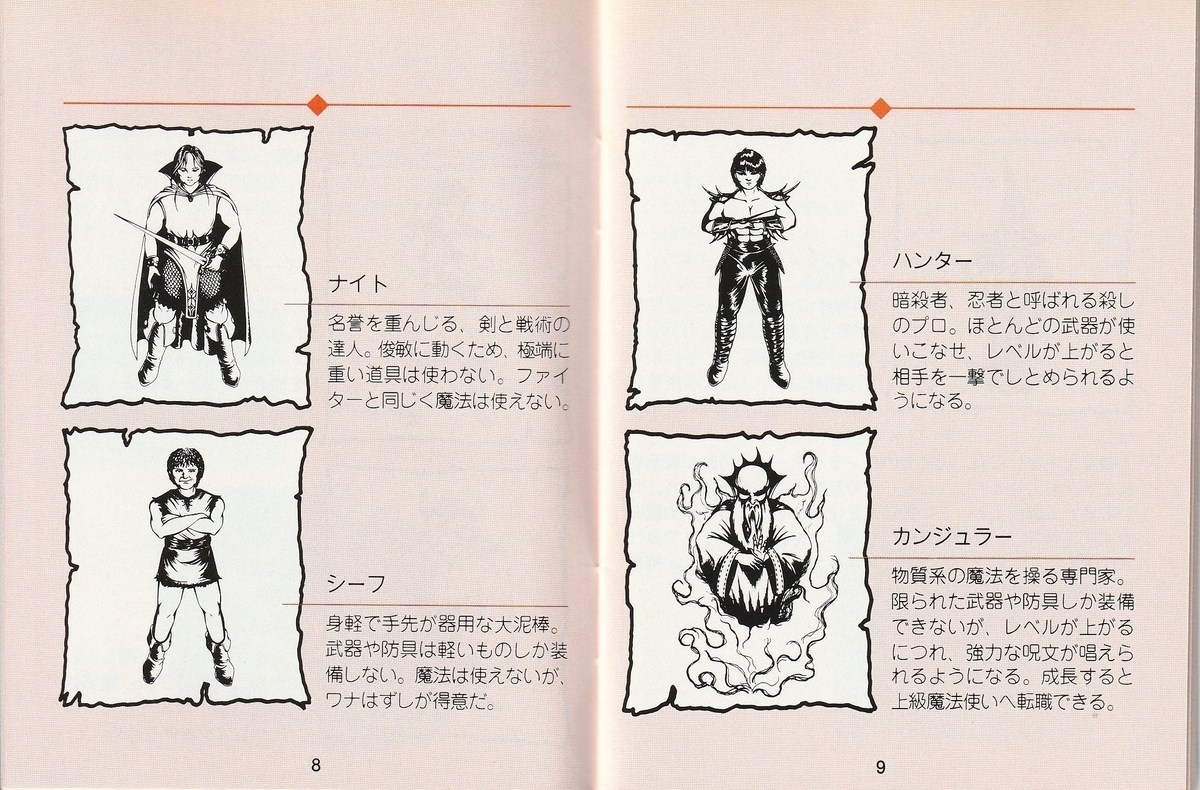 ナイト
名誉を重んじる、剣と戦術の
達人。俊敏に動くため、極端に
重い道具は使わない。ファイ
ターと同じく魔法は使えない。
シーフ
身軽で手先が器用な大泥棒。
武器や防具は軽いものしか装
備しない。魔法は使えないが、
ワナはずしが得意だ。
8
ハンター
暗殺者、忍者と呼ばれる殺し
のプロ。ほとんどの武器が使
いこなせ、レベルが上がると
相手を一撃でしとめられるよ
うになる。
カンジュラー
物質系の魔法を操る専門家。
限られた武器や防具しか装備
できないが、レベルが上がる
につれ、強力な呪文が唱えら
れるようになる。成長すると
上級魔法使いへ転職できる。
9